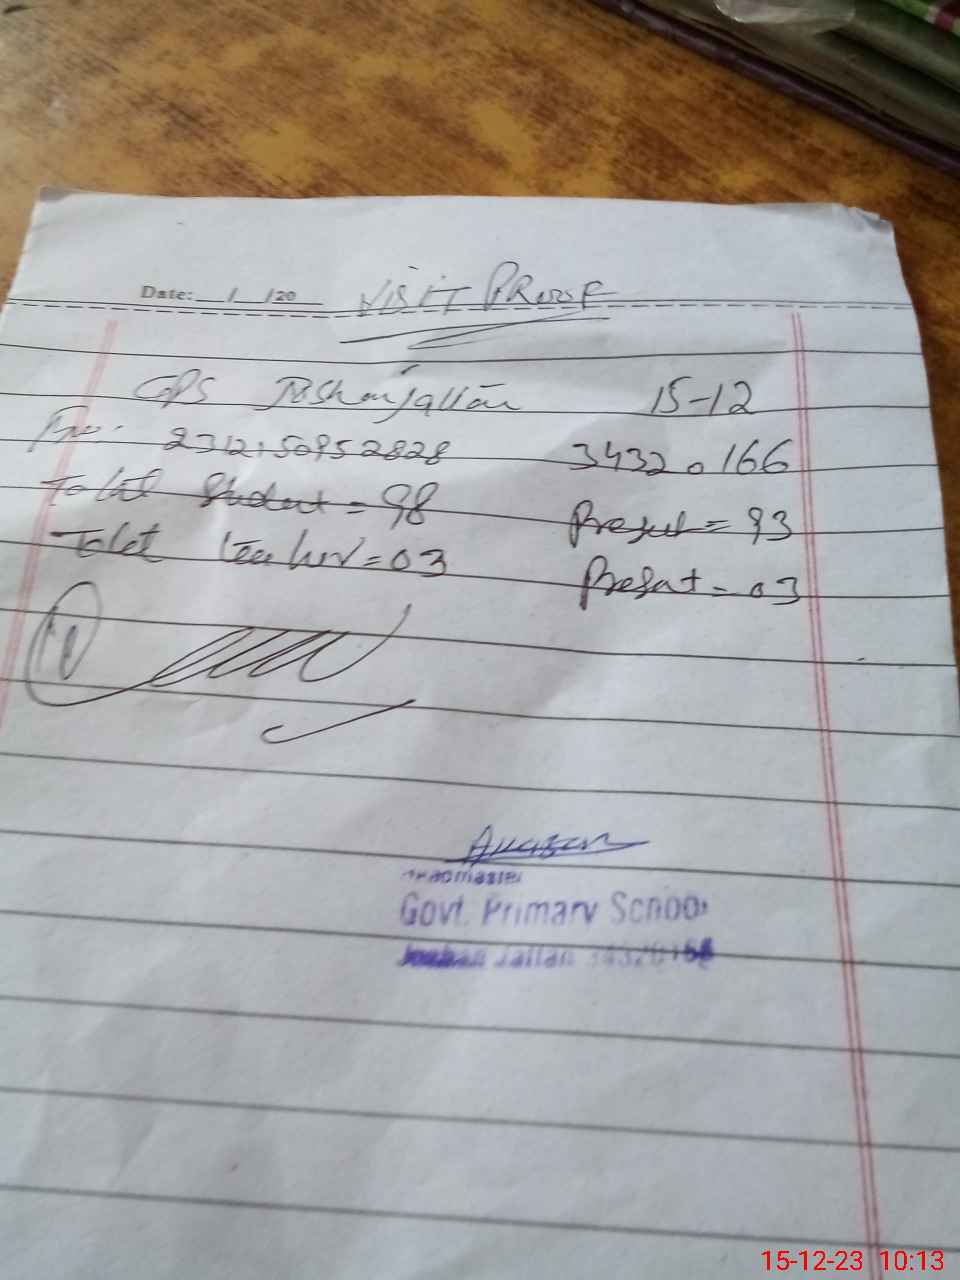 Date: __/__/20 VISIT PROOF
GPS Jallan 15-12
34320166
Total Student = 98 Present = 93
Total teacher = 03 Present = 03
Headmaster
Govt. Primary School
Jallan 34320166
15-12-23 10:13